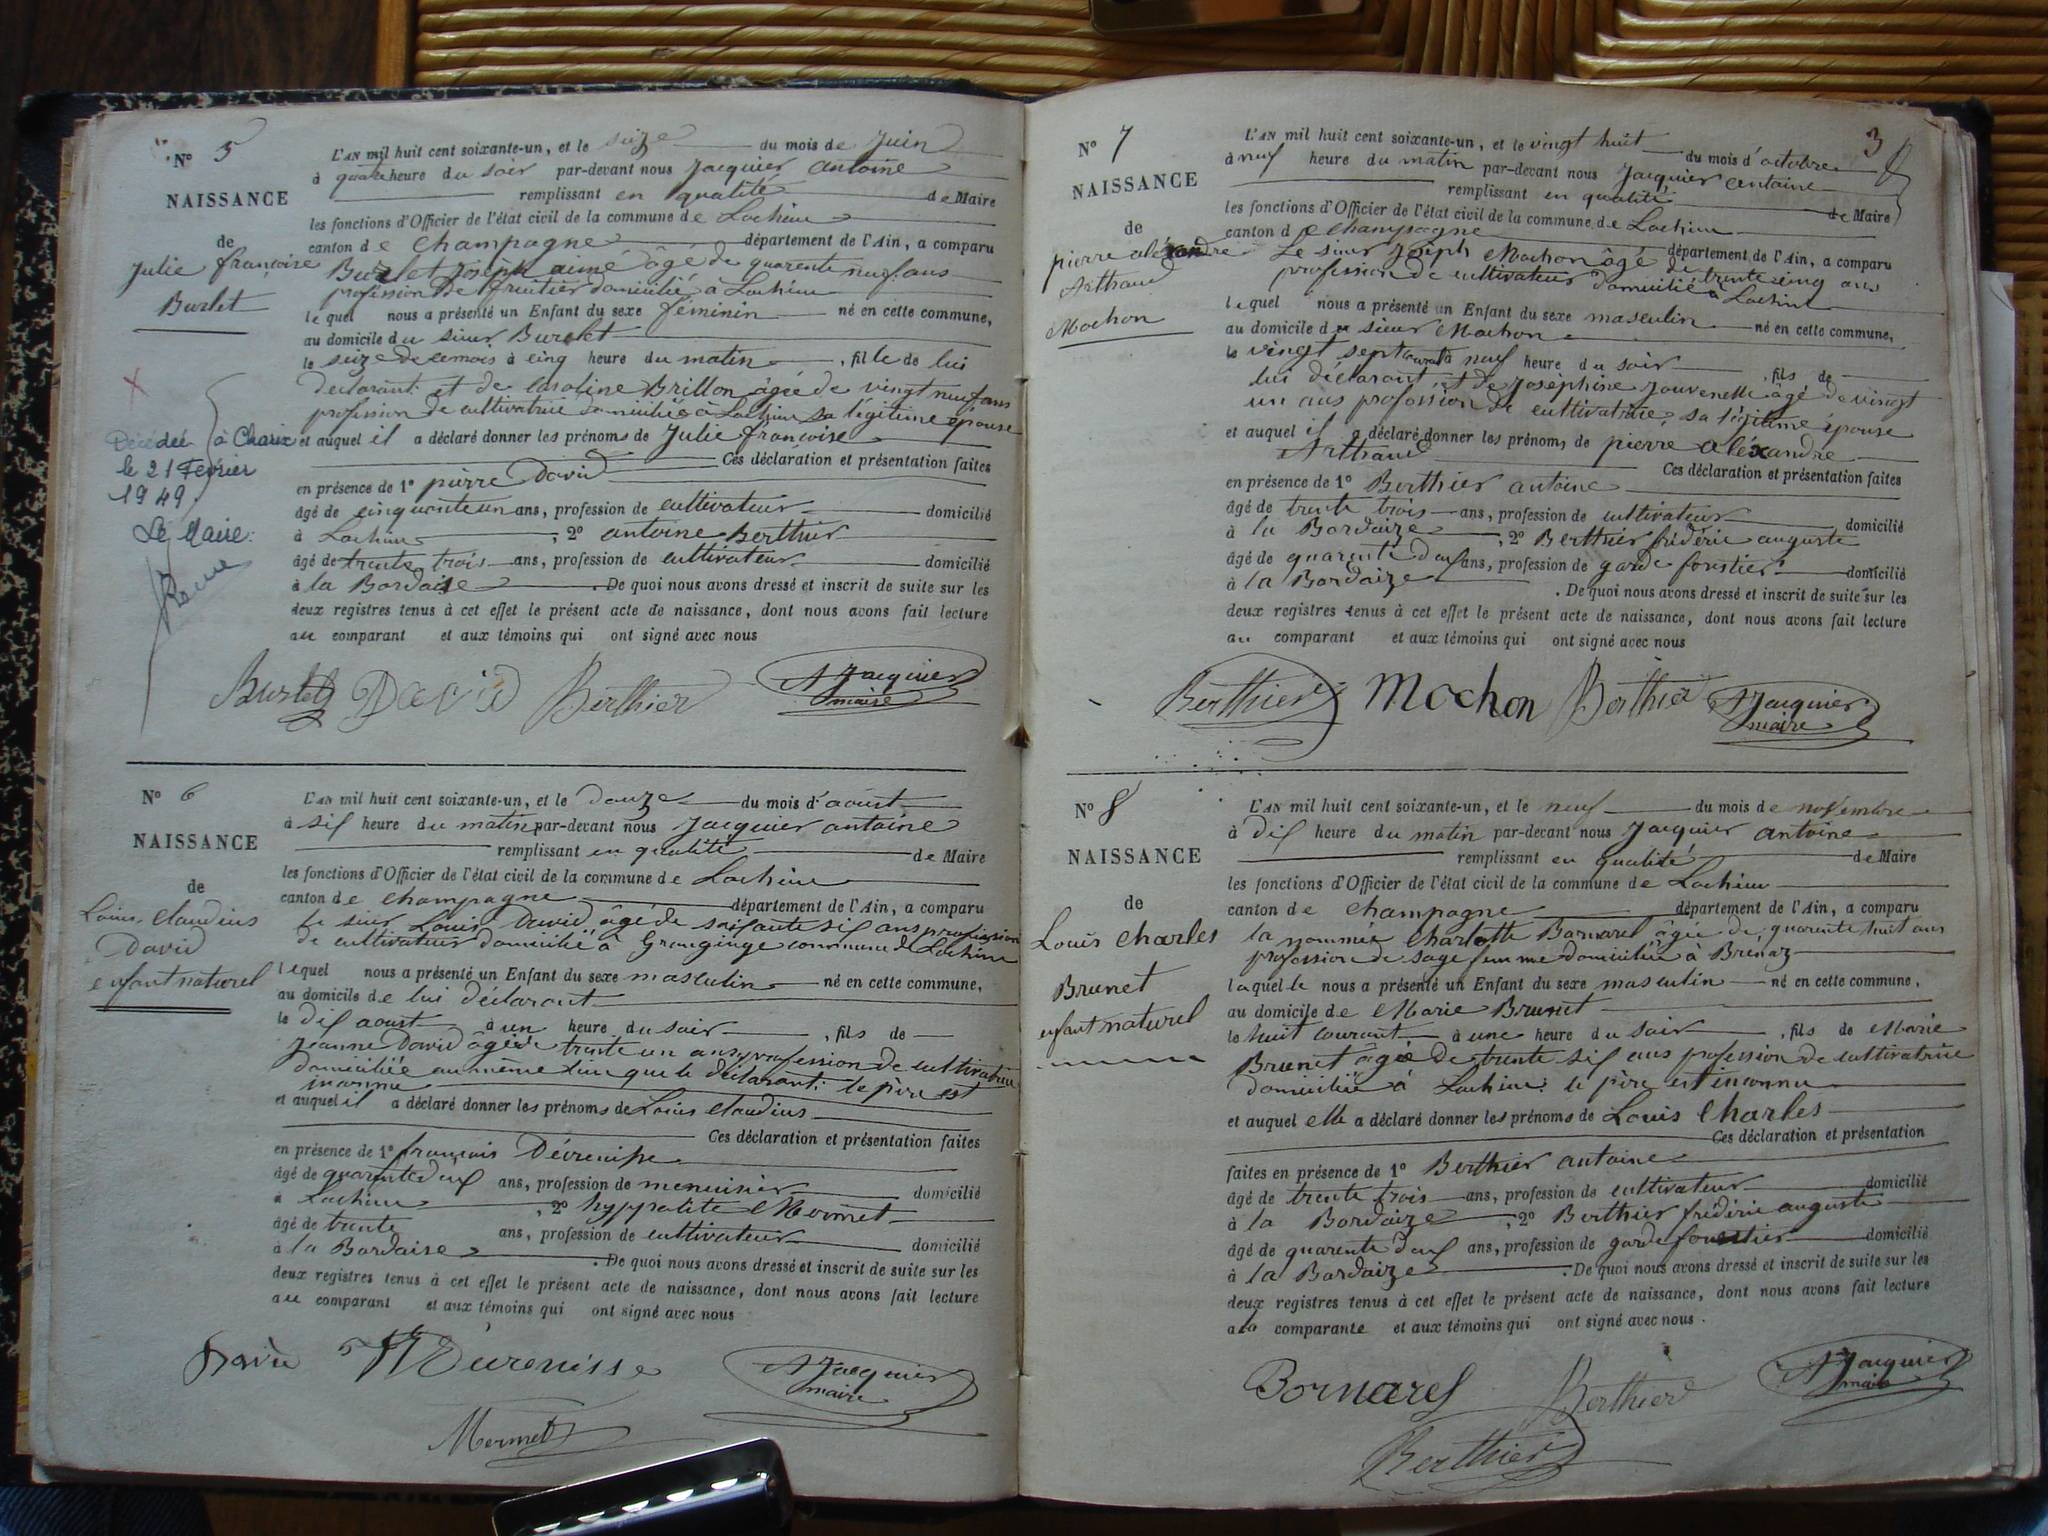 N° 5
NAISSANCE
de
Julie françoise
Burlet
Décédée à Charix
le 21 Février
1949
Le Maire:
L'AN mil huit cent soixante-un, et le seize du mois de Juin
à quatre heure du soir par-devant nous Jacquier antoine
remplissant en qualité de Maire
les fonctions d'Officier de l'état civil de la commune de Lochieu
canton de Champagne département de l'Ain, a comparu
Burlet Joseph aimé âgé de quarente neuf ans
profession de fruitier domicilié à Lochieu
lequel nous a présenté un Enfant du sexe féminin né en cette commune,
au domicile du sieur Burlet
le seize de ce mois à cinq heure du matin , fille de lui
déclarant et de Caroline Brillon âgée de vingt neuf ans
profession de cultivatrice domiciliée à Lochieu sa légitime épouse
et auquel il a déclaré donner les prénoms de Julie françoise
Ces déclaration et présentation faites
en présence de 1° pierre David
âgé de cinquante un ans, profession de cultivateur domicilié
à Lochieu , 2° antoine Berthier
âgé de trente trois ans, profession de cultivateur domicilié
à la Bordaise . De quoi nous avons dressé et inscrit de suite sur les
deux registres tenus à cet effet le présent acte de naissance, dont nous avons fait lecture
au comparant et aux témoins qui ont signé avec nous
Burlet David Berthier A Jacquier
maire
N° 6
NAISSANCE
de
Louis Claudius
David
enfant naturel
L'AN mil huit cent soixante-un, et le douze du mois d'aoust
à six heure du matin par-devant nous Jacquier antoine
remplissant en qualité de Maire
les fonctions d'Officier de l'état civil de la commune de Lochieu
canton de Champagne département de l'Ain, a comparu
le sieur Louis David âgé de soixante six ans profession
de cultivateur domicilié à Granginge commune de Lochieu
lequel nous a présenté un Enfant du sexe masculin né en cette commune,
au domicile de lui déclarant
le dix aoust à un heure du soir , fils de
Jeanne David âgée de trente un ans profession de cultivatrice
domiciliée au même lieu que le déclarant: le père est
inconnu
et auquel il a déclaré donner les prénoms de Louis Claudius
Ces déclaration et présentation faites
en présence de 1° françois Dévrenisse
âgé de quarente deux ans, profession de menuisier domicilié
à Lochieu , 2° hyppolite Mermet
âgé de trente ans, profession de cultivateur domicilié
à la Bordaise . De quoi nous avons dressé et inscrit de suite sur les
deux registres tenus à cet effet le présent acte de naissance, dont nous avons fait lecture
au comparant et aux témoins qui ont signé avec nous
David Dévrenisse A Jacquier
maire
Mermet
3
N° 7
NAISSANCE
de
pierre aléxandre
Arthaud
Mochon
L'AN mil huit cent soixante-un, et le vingt huit du mois d'octobre
à neuf heure du matin par-devant nous Jacquier antoine
remplissant en qualité de Maire
les fonctions d'Officier de l'état civil de la commune de Lochieu
canton de Champagne département de l'Ain, a comparu
Le sieur Joseph Mochon âgé de trente cinq ans
profession de cultivateur domicilié à Lochieu
lequel nous a présenté un Enfant du sexe masculin né en cette commune,
au domicile du sieur Mochon
le vingt sept courant à neuf heure du soir , fils de
lui déclarant et de Joséphine Jouvenelle âgé de vingt
un ans profession de cultivatrice, sa légitime épouse
et auquel il a déclaré donner les prénoms de pierre aléxandre
Arthaud Ces déclaration et présentation faites
en présence de 1° Berthier antoine
âgé de trente trois ans, profession de cultivateur domicilié
à la Bordaize , 2° Berthier frédéric auguste
âgé de quarante deux ans, profession de garde forestier domicilié
à la Bordaize . De quoi nous avons dressé et inscrit de suite sur les
deux registres tenus à cet effet le présent acte de naissance, dont nous avons fait lecture
au comparant et aux témoins qui ont signé avec nous
Berthier Mochon Berthier A Jacquier
maire
N° 8
NAISSANCE
de
Louis Charles
Brunet
enfant naturel
L'AN mil huit cent soixante-un, et le neuf du mois de novembre
à dix heure du matin par-devant nous Jacquier antoine
remplissant en qualité de Maire
les fonctions d'Officier de l'état civil de la commune de Lochieu
canton de Champagne département de l'Ain, a comparu
la nommée Charlotte Bornarel âgée de quarente huit ans
profession de sage femme domiciliée à Brénaz
laquelle nous a présenté un Enfant du sexe masculin né en cette commune,
au domicile de Marie Brunet
le huit courant à une heure du soir , fils de Marie
Brunet âgée de trente six ans profession de cultivatrice
domiciliée à Lochieu: le père est inconnu
et auquel elle a déclaré donner les prénoms de Louis Charles
Ces déclaration et présentation
faites en présence de 1° Berthier antoine
âgé de trente trois ans, profession de cultivateur domicilié
à la Bordaize , 2° Berthier frédéric auguste
âgé de quarente deux ans, profession de garde forestier domicilié
à la Bordaize . De quoi nous avons dressé et inscrit de suite sur les
deux registres tenus à cet effet le présent acte de naissance, dont nous avons fait lecture
a la comparante et aux témoins qui ont signé avec nous .
Bornarel Berthier A Jacquier
maire
Berthier